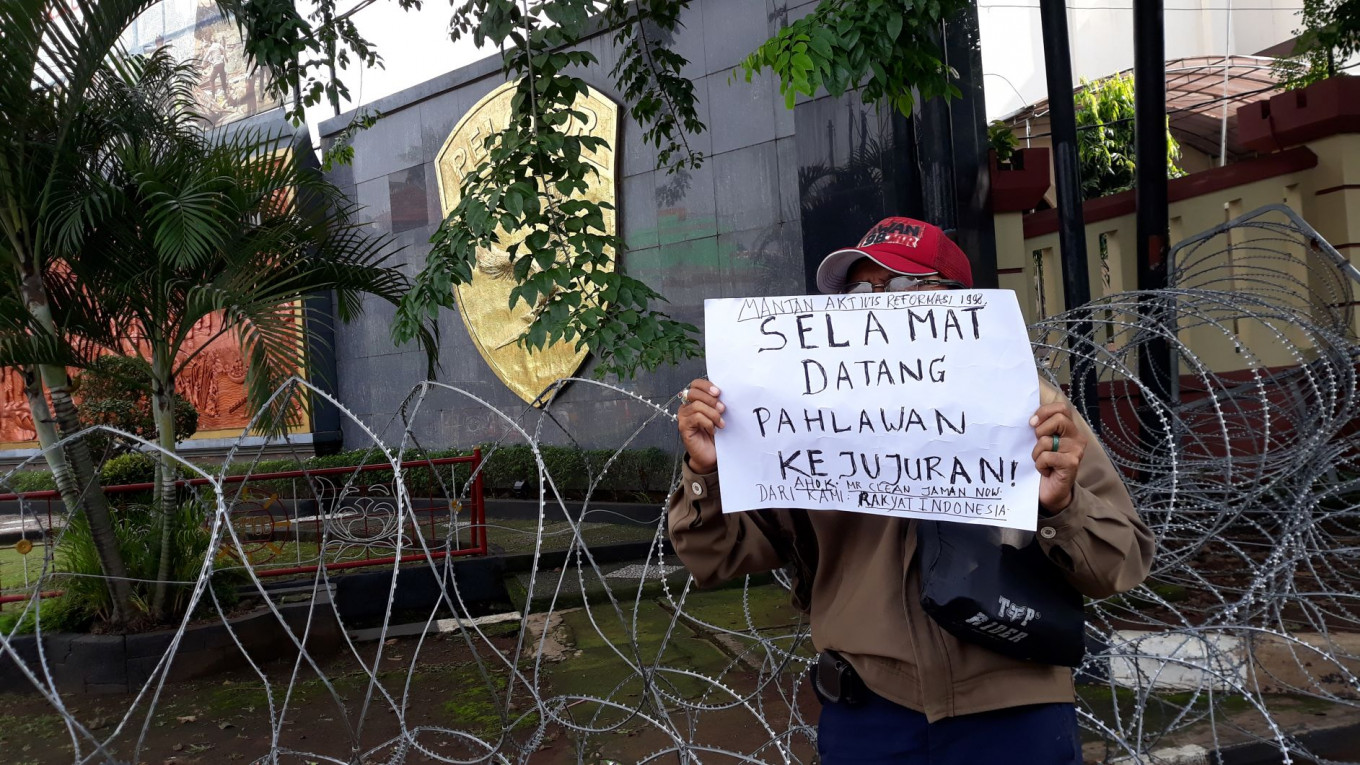 MANTAN AKTIVIS REFORMASI 1998.
SELAMAT
DATANG
PAHLAWAN
KEJUJURAN!
AHOK: MR CLEAN JAMAN NOW.
DARI KAMI: RAKYAT INDONESIA.
TOP
RIDER